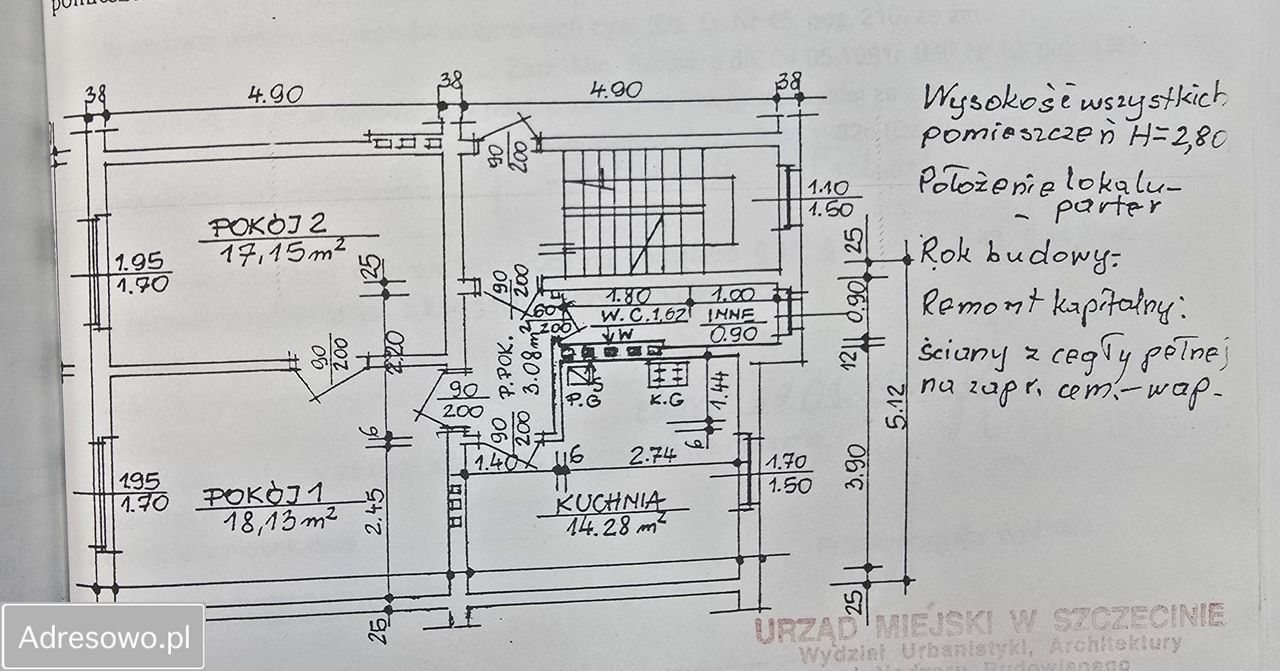 38
4.90
38
4.90
38
Wysokość wszystkich
pomieszczeń H=2,80
Położenie lokalu-
- parter
Rok budowy-
Remont kapitalny:
ściany z cegły pełnej
na zapr. cem.-wap.
90
200
1.10
1.50
POKÓJ 2
17,15 m²
1.95
1.70
25
25
90
200
1.80
1.00
60
200
W.C. 1,62
INNE
0.90
W
0.90
12
5.12
3.90
25
90
200
2.20
P.POK.
3.08 m²
90
200
P.G
K.G
1.44
6
90
200
6
1.40
6
2.74
1.70
1.50
195
1.70
POKÓJ 1
18,13 m²
2.45
KUCHNIA
14.28 m²
25
URZĄD MIEJSKI W SZCZECINIE
Wydział Urbanistyki, Architektury
Nadzoru Budowlanego
Adresowo.pl